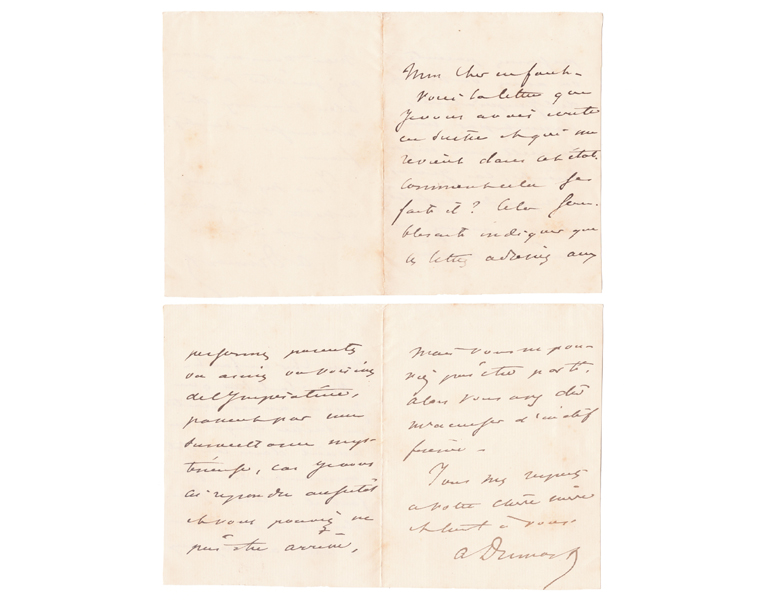 Mon cher enfant –
Voici la lettre que
Je vous avais écrite
et qui me
revient dans cet état.
Comment cela se
fait il ? Cela sem-
blerait indiquer que
les lettres adressées aux
personnes parentes
ou amies ou voisines
de l'Impératrice,
passent par une
surveillance mys-
térieuse, car je vous
ai répondu aussitôt
et vous pouviez ne
pas être arrivée,
mais vous ne pou-
viez pas être partie.
Alors vous avez dû
m'accuser d'indif
férence –
Tous mes respects
à votre chère mère
et tout à vous.
A Dumas f